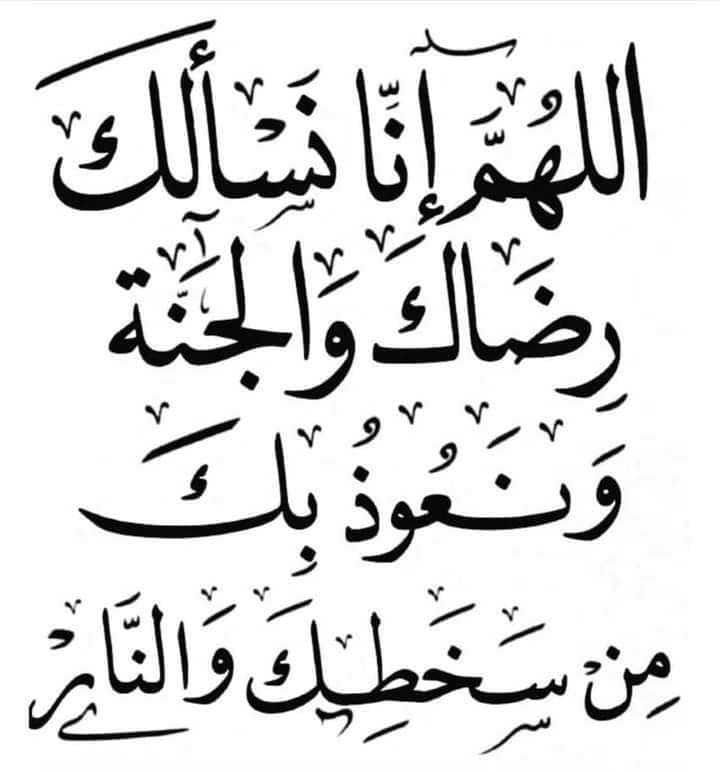 اللهُمَّ إِنَّا نَسْأَلُكَ
رِضَاكَ وَالجَنَّة
وَنَعُوذُ بِكَ
مِنْ سَخَطِكَ وَالنَّارْ